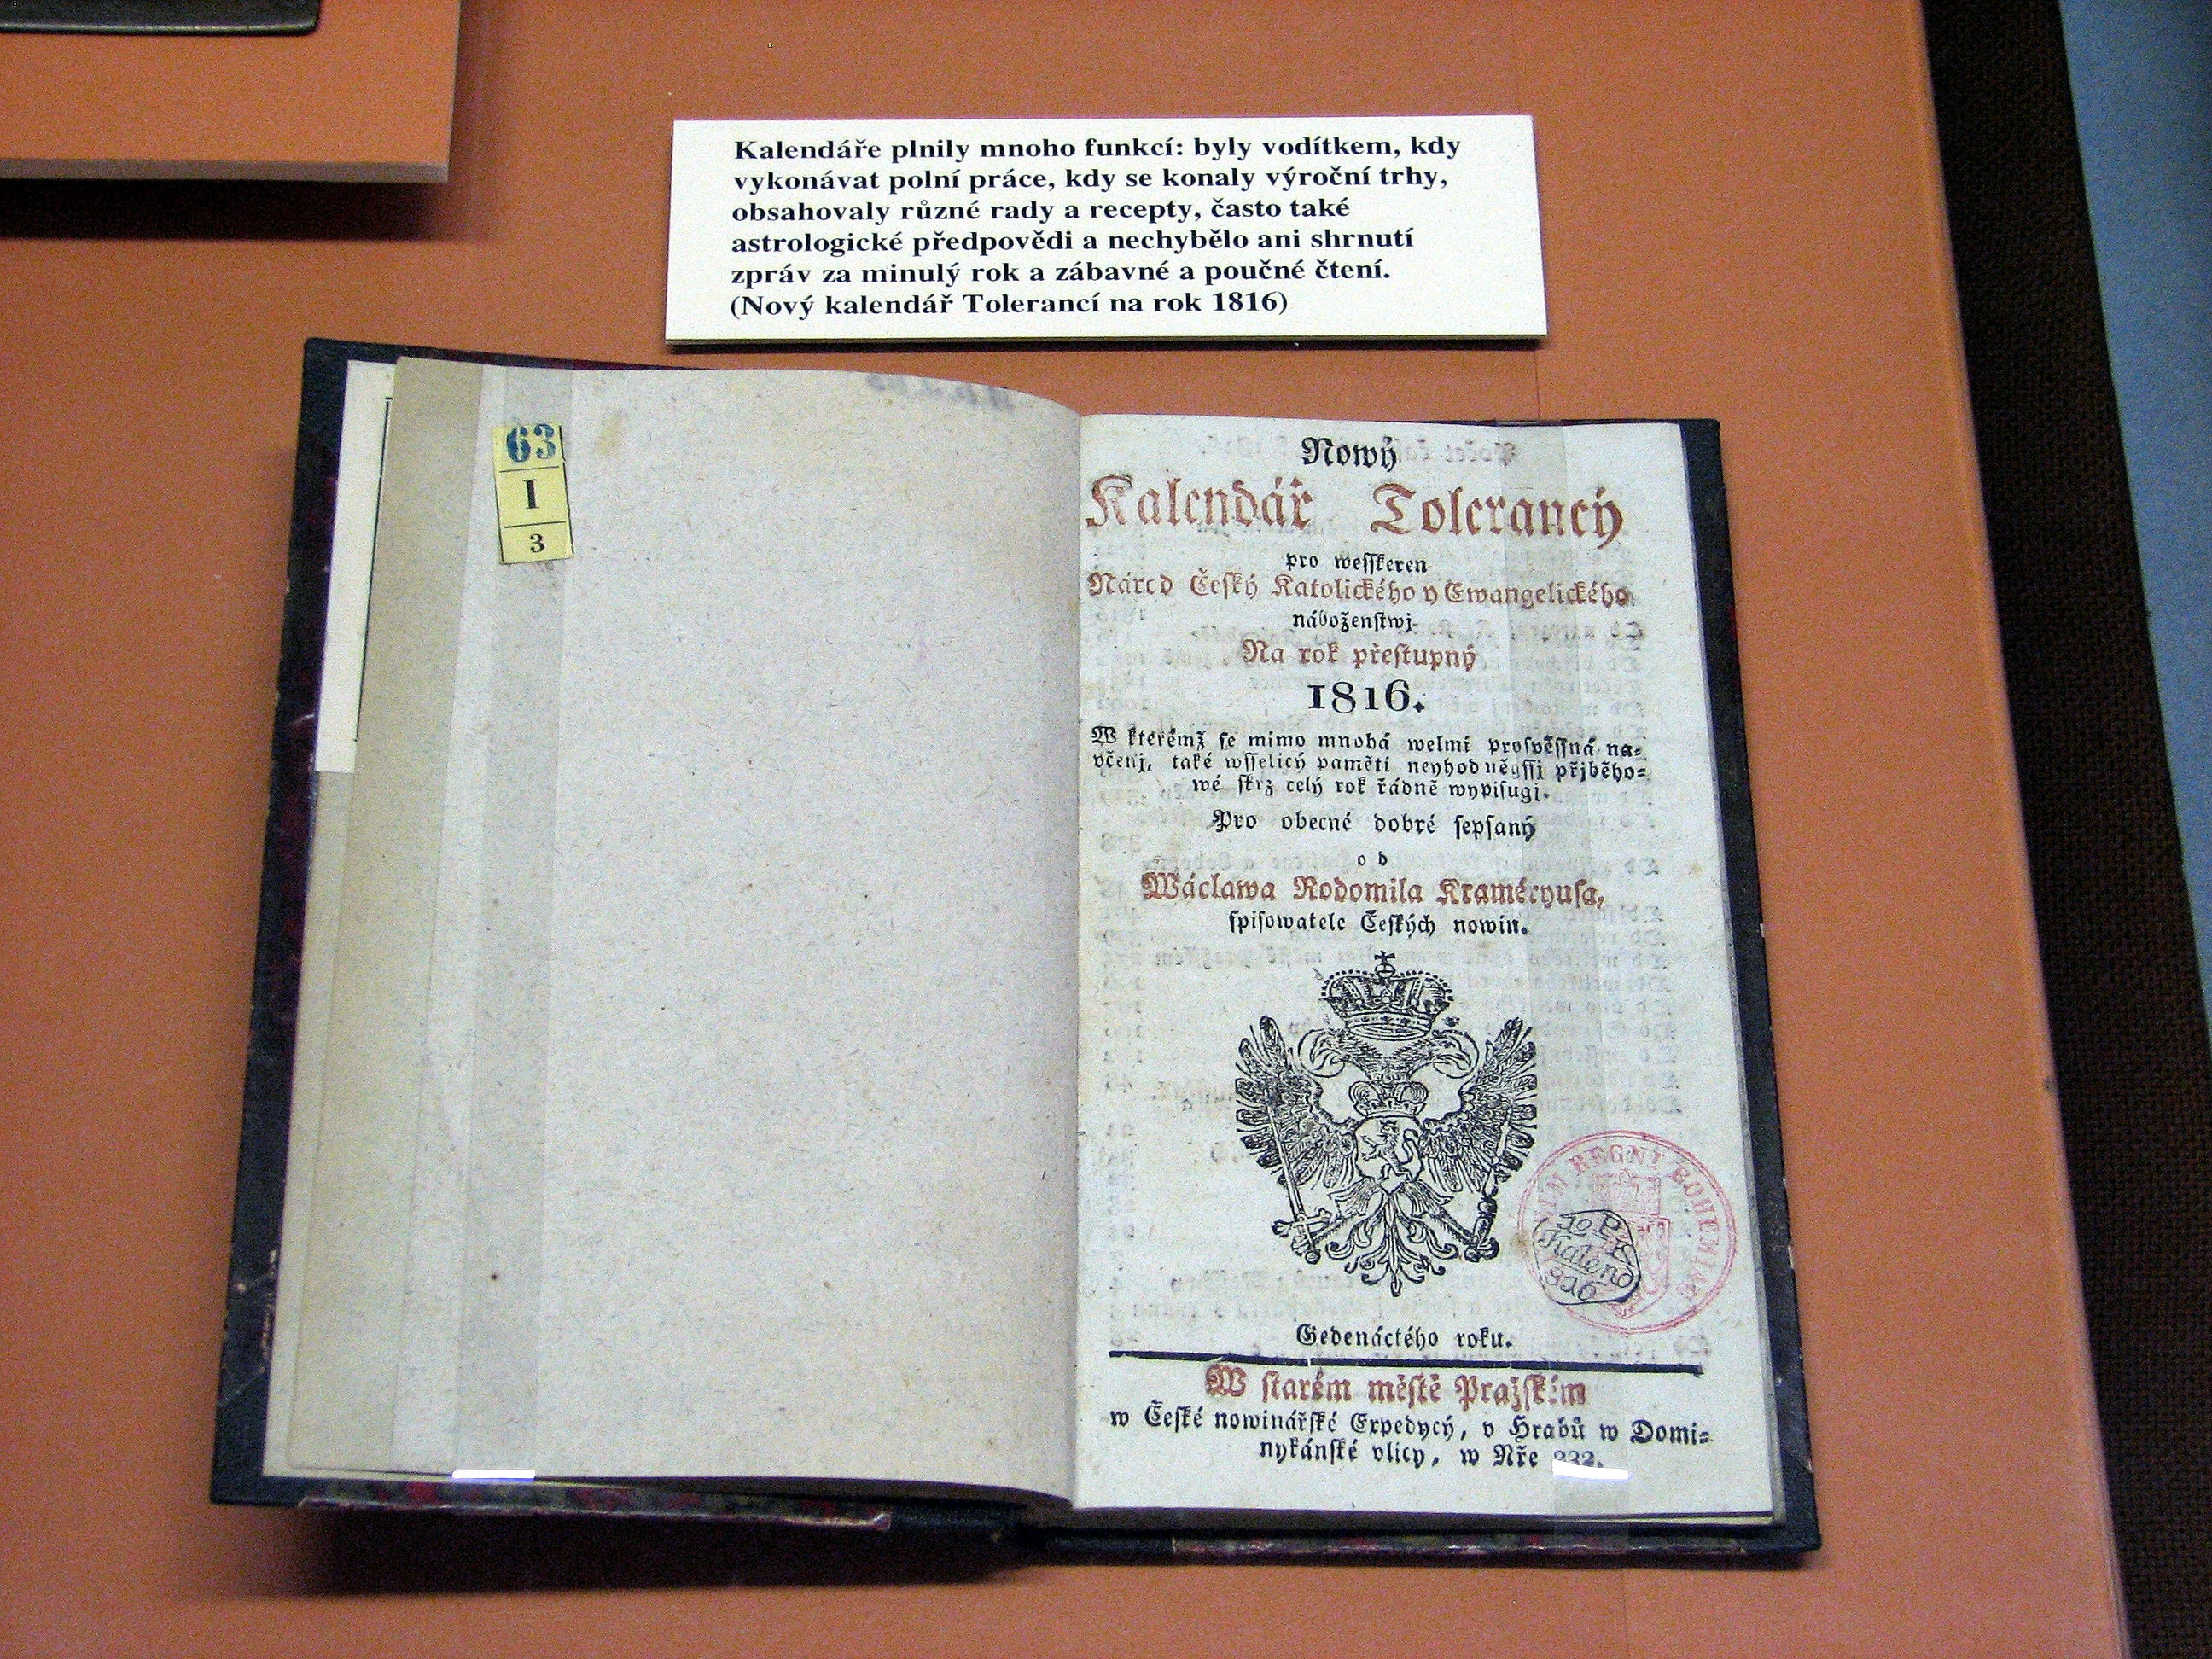 Kalendáře plnily mnoho funkcí: byly vodítkem, kdy
vykonávat polní práce, kdy se konaly výroční trhy,
obsahovaly různé rady a recepty, často také
astrologické předpovědi a nechybělo ani shrnutí
zpráv za minulý rok a zábavné a poučné čtení.
(Nový kalendář Tolerancí na rok 1816)
63
I
3
Nowý
Kalendář Tolerancý
pro wesſkeren
Národ Čeſký Katolického y Ewangelického
náboženſtwj
Na rok přeſtupný
1816.
W kterémž ſe mimo mnohá welmi proſpěſſná na-
včenj, také wſſelicý paměti neyhodněgſſj přjběho-
wé ſkrz celý rok řádně wypiſugj.
Pro obecné dobré ſepſaný
od
Wáclawa Rodomila Kraméryuſa,
ſpiſowatele Čeſkých nowin.
REGNI BOHEMIAE
Gedenáctého roku.
W ſtarém měſtě Pražſkém
w Čeſké nowinářſké Expedycý, v Hrabů w Domi-
nykánſké vlicy, w Nře 232.